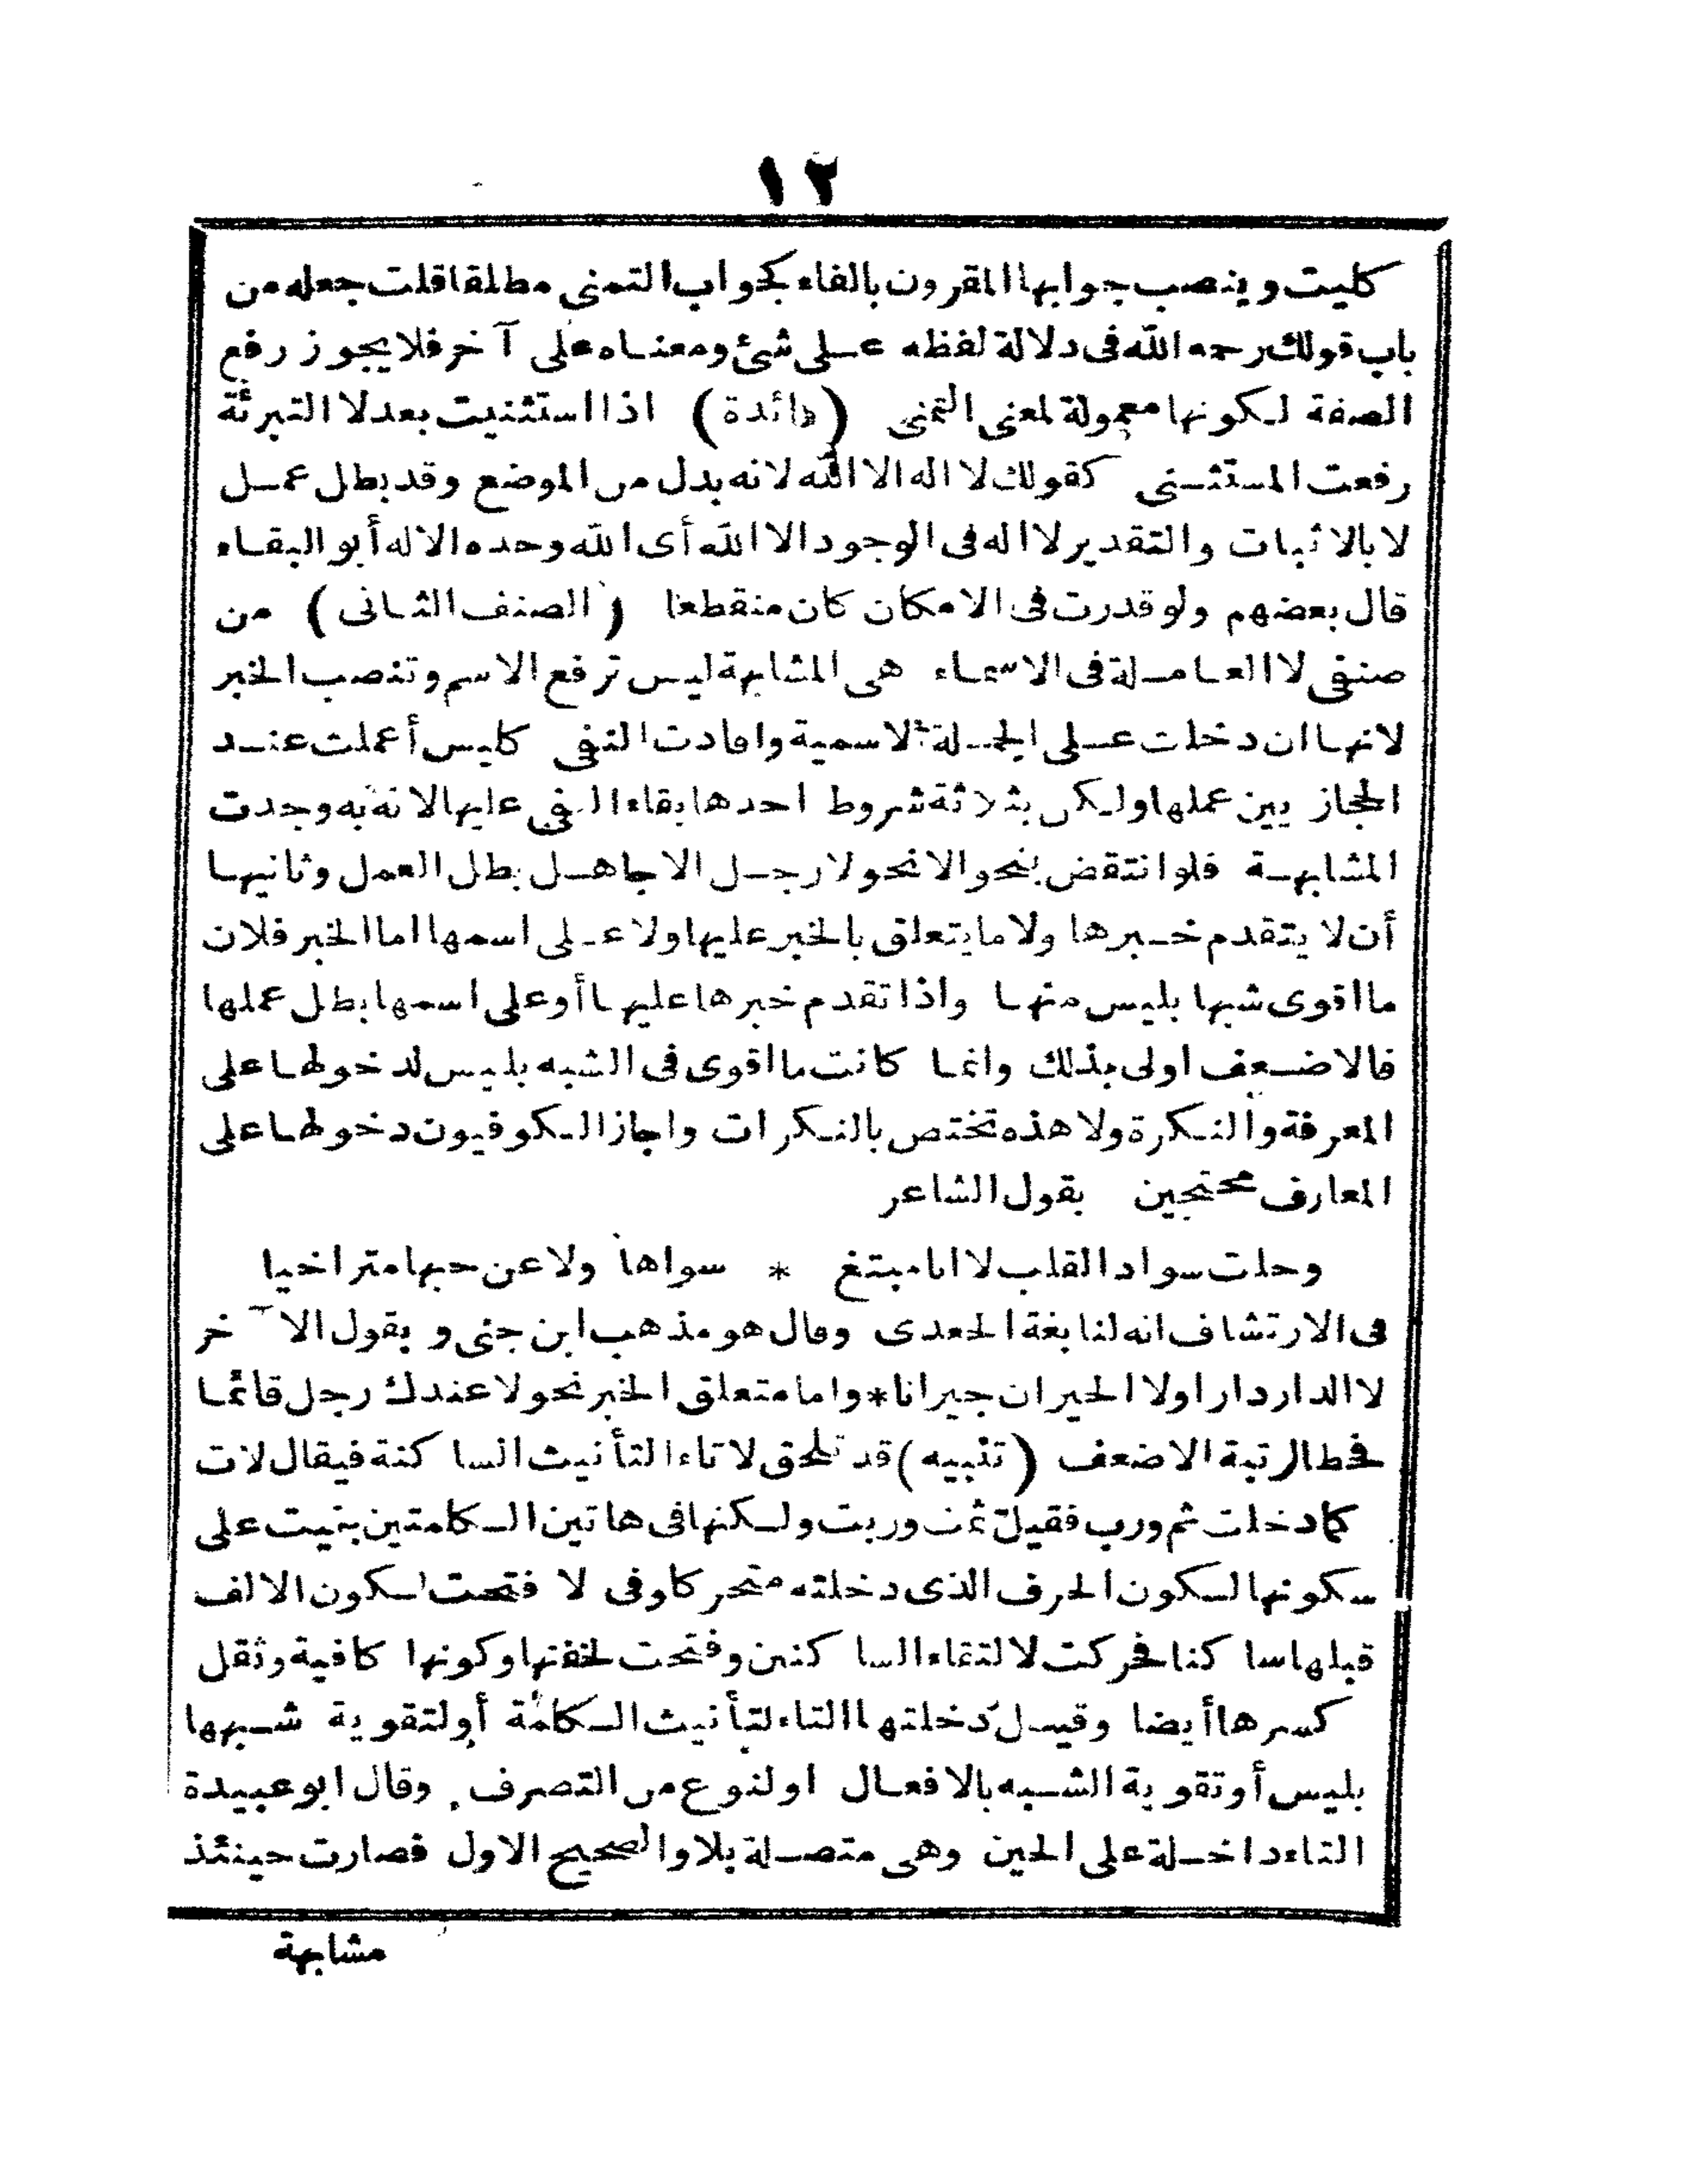 ١٢
كليت وينصب جوابها المقرون بالفاء كجواب التمنى مطلقا قلت جعله من
باب قولك رحمه الله فى دلالة لفظه على شئ ومعناه على آخر فلا يجوز رفع
الصفة لكونها معمولة لمعنى التمنى (فائدة) اذا استثنيت بعد لا التبرئة
رفعت المستثنى كقولك لا اله الا الله لانه بدل من الموضع وقد بطل عمل
لا بالاثبات والتقدير لا اله فى الوجود الا الله أى الله وحده الاله أبو البقاء
قال بعضهم ولو قدرت فى الامكان كان منقطعا (الصنف الثانى) من
صنفى لا العاملة فى الاسماء هى المشابهة ليس ترفع الاسم وتنصب الخبر
لانها ان دخلت على الجملة الاسمية وافادت النفى كليس أعملت عند
الحجاز يين عملها ولكن بثلاثة شروط احدها بقاء النفى عليها لانه به وجدت
المشابهة فلو انتقض بنحو الا نحو لا رجل الا جاهل بطل العمل وثانيها
أن لا يتقدم خبرها ولا ما يتعلق بالخبر عليها ولا على اسمها اما الخبر فلان
ما اقوى شبها بليس منها واذا تقدم خبرها عليها أو على اسمها بطل عملها
فالاضعف اولى بذلك وانما كانت ما اقوى فى الشبه بليس لدخولها على
المعرفة والنكرة ولا هذه تختص بالنكرات واجاز الكوفيون دخولها على
المعارف محتجين بقول الشاعر
وحلت سواد القلب لا انا مبتغ * سواها ولا عن حبها متراخيا
فى الارتشاف انه لنابغة الجعدى وقال هو مذهب ابن جنى و بقول الآخر
لا الدار دارا ولا الجيران جيرانا * واما متعلق الخبر نحو لا عندك رجل قائما
فحط الرتبة الاضعف (تنبيه) قد تلحق لا تاء التأنيث الساكنة فيقال لات
كما دخلت ثم ورب فقيل ثمت وربت ولكنها فى هاتين الكلمتين بنيت على
سكونها لسكون الحرف الذى دخلته متحركا وفى لا فتحت لسكون الالف
قبلها ساكنا فحركت لالتقاء الساكنين وفتحت لخفتها وكونها كافية وثقل
كسرها أيضا وقيل دخلتها التاء لتأنيث الكلمة أو لتقوية شبهها
بليس أو تقوية الشبه بالافعال او لنوع من التصرف وقال ابو عبيدة
التاء داخلة على الحين وهى متصلة بلا والصحيح الاول فصارت حينئذ
مشابهة